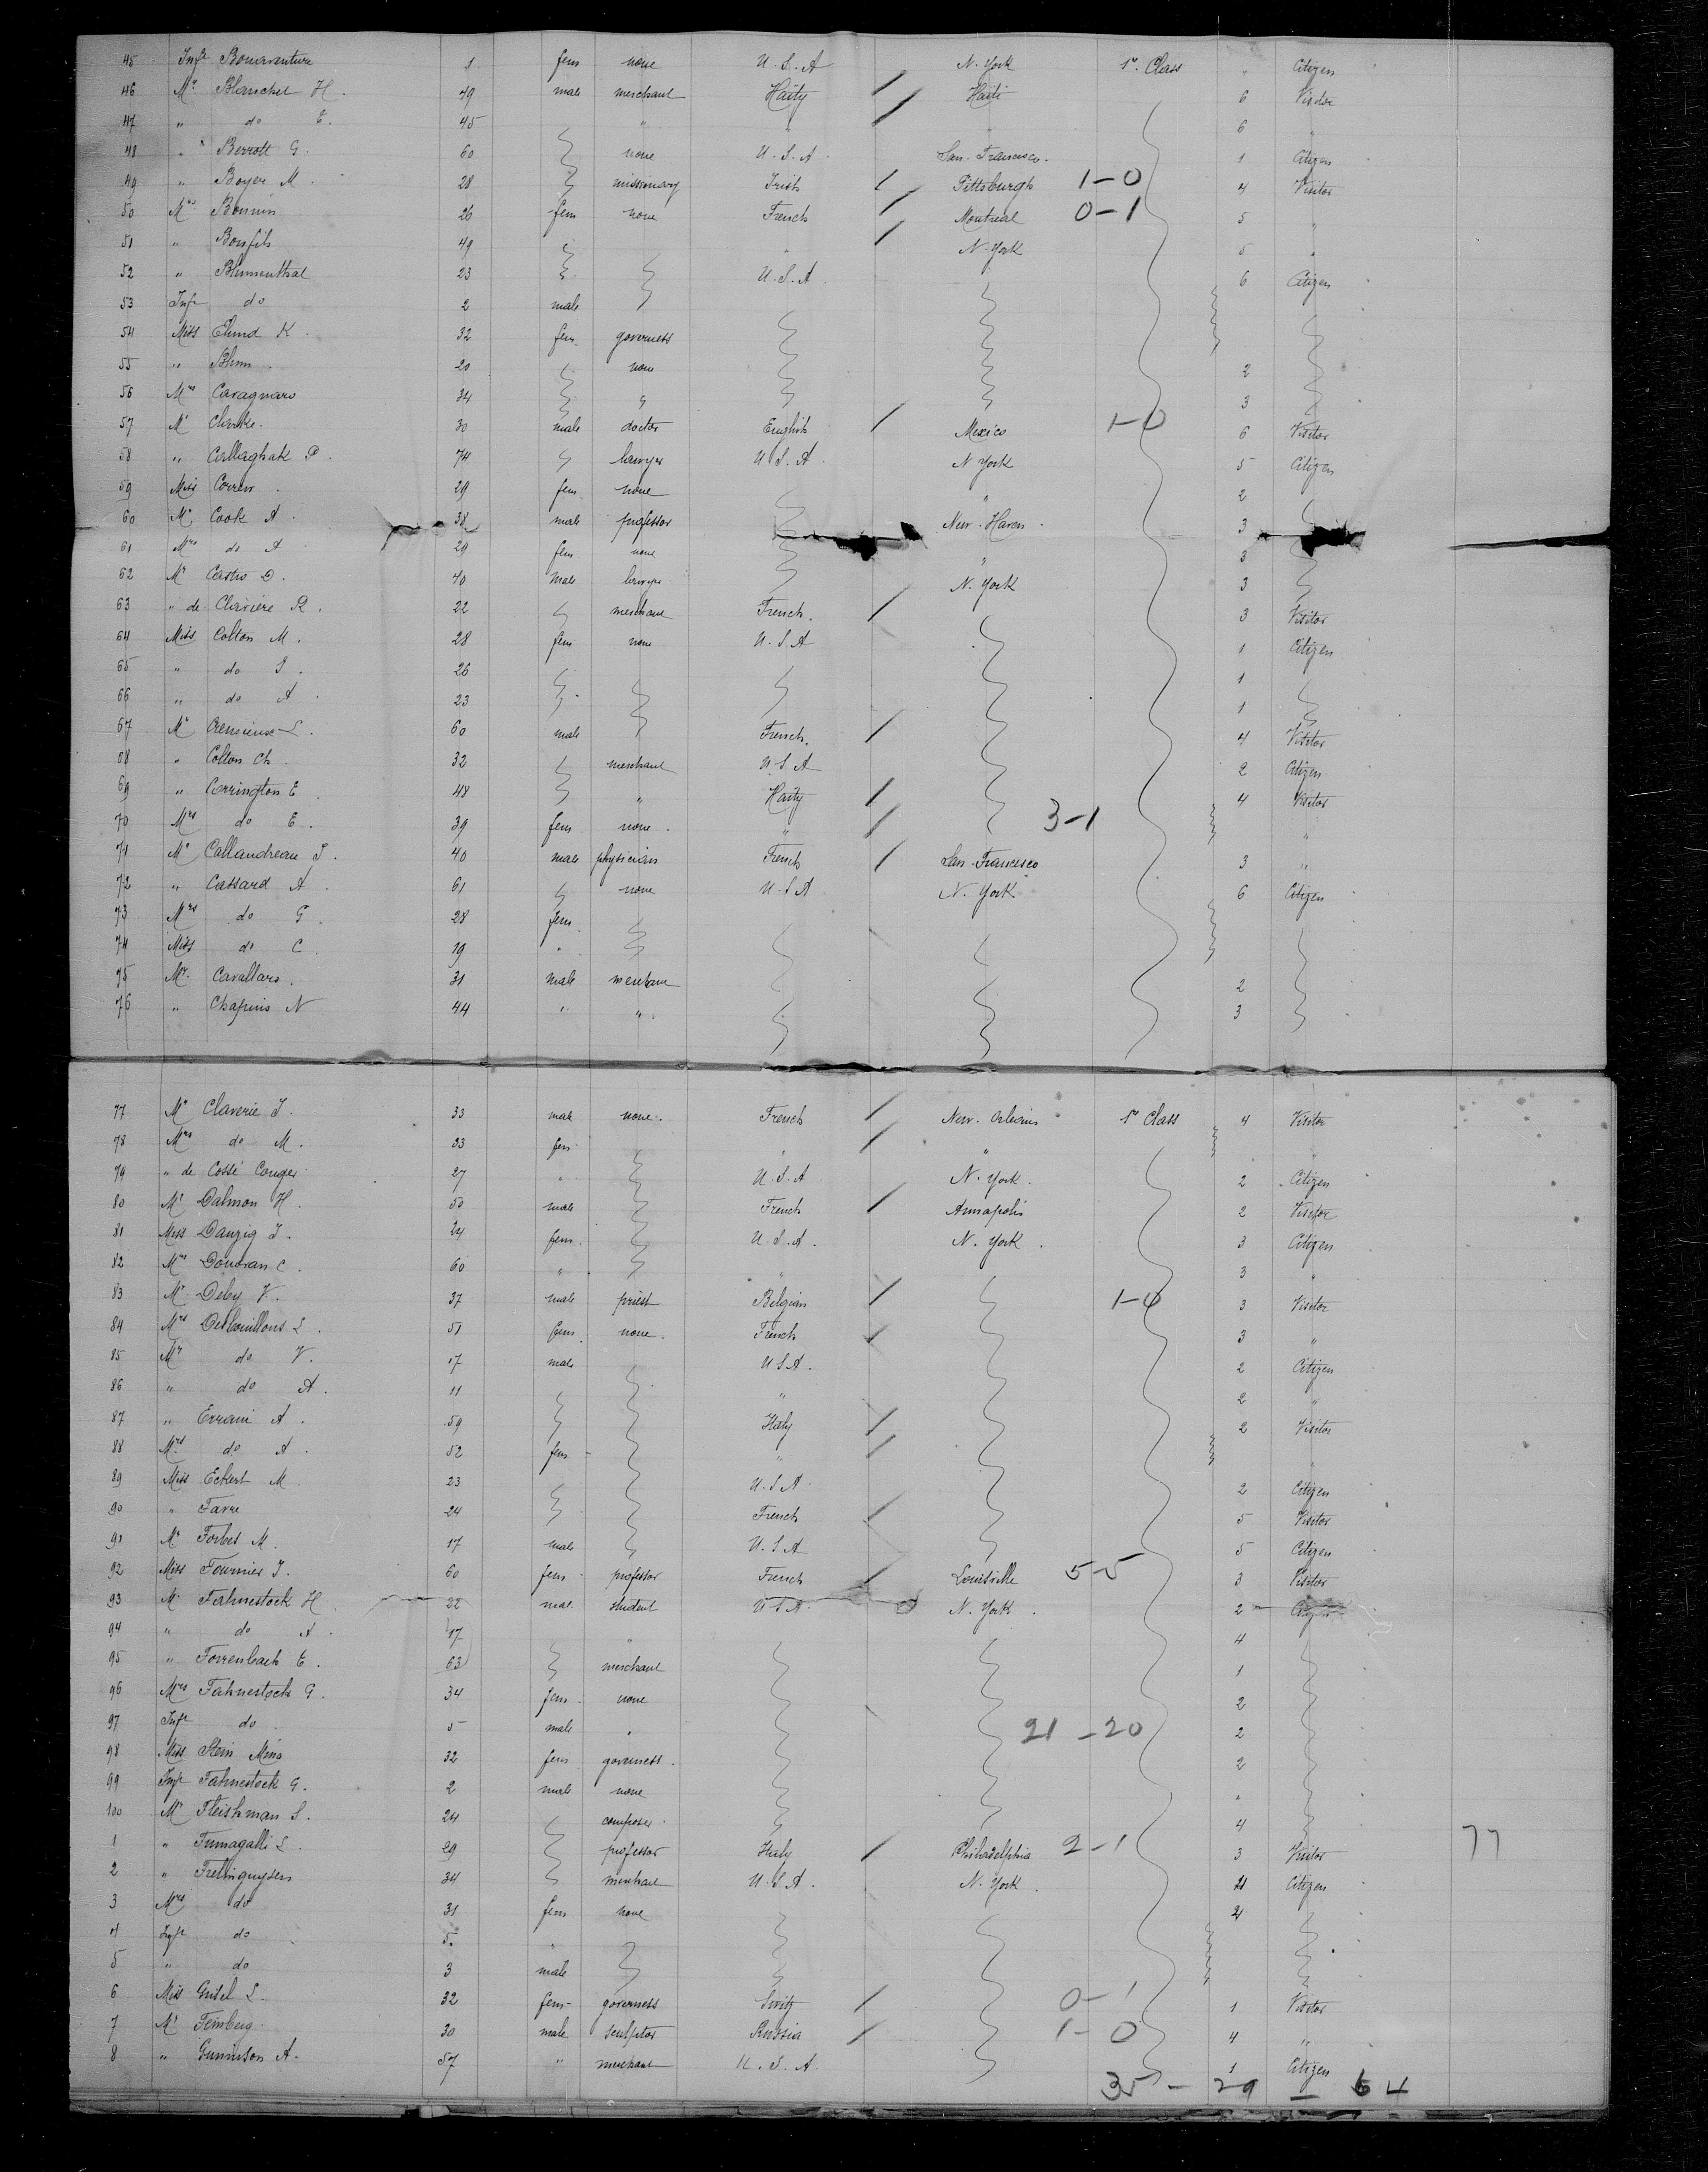 45 Inft Bonaventure 1 fem none U.S.A N. York 1re Class " Citizen
46 Mr Blanchet H. 49 male merchant Haïty / Haïti 6 Visitor
47 " do E. 45 " " / " 6 "
48 " Berrott G. 60 none U.S.A San Francisco. 1 Citizen
49 " Boyer M. 28 missionary Irish / Pittsburgh 1-0 4 Visitor
50 Mrs Bonnin 26 fem none French / Montreal 0-1 5 "
51 " Bonfils 49 " / N. York 5 "
52 " Blumenthal 23 U.S.A. 6 Citizen
53 Inft do 2 male
54 Miss K. 32 fem. governess
55 " Blum 20 none 2
56 Mrs Cavagnaro 34 " 3
57 Mr Clarke. 30 male doctor English / Mexico 1-0 6 Visitor
58 " P. 74 lawyer U.S.A. N York 5 Citizen
59 Miss 29 fem. none " 2
60 Mr Cook A. 38 male professor New-Haven. 3
61 Mrs do A 29 fem none " 3
62 Mr Castro D. 40 male lawyer N. York 3
63 " de Claviere R. 22 merchant French. / 3 Visitor
64 Miss Colton M. 28 fem none U.S.A 1 Citizen
65 " do S. 26 1
66 " do A. 23 1
67 Mr L. 60 male French. / 4 Visitor
68 " Colton Ch 32 merchant U.S.A 2 Citizen
69 " Corrington E. 48 " Haïty / 4 Visitor
70 Mrs do E. 39 fem none. " / 3-1 "
71 Mr Callandreau J. 40 male physician French / San-Francisco 3 "
72 " Cassard A. 61 none U.S.A N. York 6 Citizen
73 Mrs do G. 28 fem.
74 Miss do C. 19 "
75 Mr. Cavallaro. 31 male merchant 2
76 " Chapuis N 44 " " 3
77 Mr Claverie J. 33 male none. French / New-Orleans 1re Class 4 Visitor
78 Mrs do M. 33 fem " / " "
79 " de Cossé Conger 27 " U.S.A N. York. 2 Citizen
80 Mr Dalmon H. 50 male French / Annapolis 2 Visitor
81 Miss Danzig J. 24 fem. U.S.A. N. York. 3 Citizen
82 Mrs C. 60 " " 3 "
83 Mr Deby V. 37 male priest Belgian / 1-0 3 Visitor
84 Mrs L. 51 fem. none. French / 3 "
85 Mr do V. 17 male U.S.A. 2 Citizen
86 " do A. 11 " 2 "
87 " Errani A. 59 Italy / 2 Visitor
88 Mrs do A. 52 fem " / "
89 Miss Eckert M. 23 U.S.A. 2 Citizen
90 " Favre 24 French / 5 Visitor
91 Mr Forbes M. 17 male U.S.A 5 Citizen
92 Miss Fournier J. 60 fem professor French / Louisville 5-5 3 Visitor
93 M. Fahnestock H. 22 male student U.S.A. N. York. 2 Citizen
94 " do A. 17 " 4
95 " E. 63 merchant 1
96 Mrs Fahnestock G. 34 fem none 2
97 Inft do 5 male " 21-20 2
98 Miss Stein Mina 32 fem governess. 2
99 Inft Fahnestock G. 2 male none "
100 Mr Fleishman S. 24 composer. 4
1 " Fumagalli L. 29 professor Italy / Philadelphia 2-1 3 Visitor 77
2 " Frelinguysen 34 merchant U.S.A. N. York. 4 Citizen
3 Mrs do 31 fem none 4
4 Inft do 5. "
5 " do 3 male
6 Miss L. 32 fem- governess Switz / 0-1 1 Visitor
7 Mr 30 male sculptor Russia / 1-0 4 "
8 " Gunnison A. 57 " merchant U.S.A. 1 Citizen
35 - 29 = 64